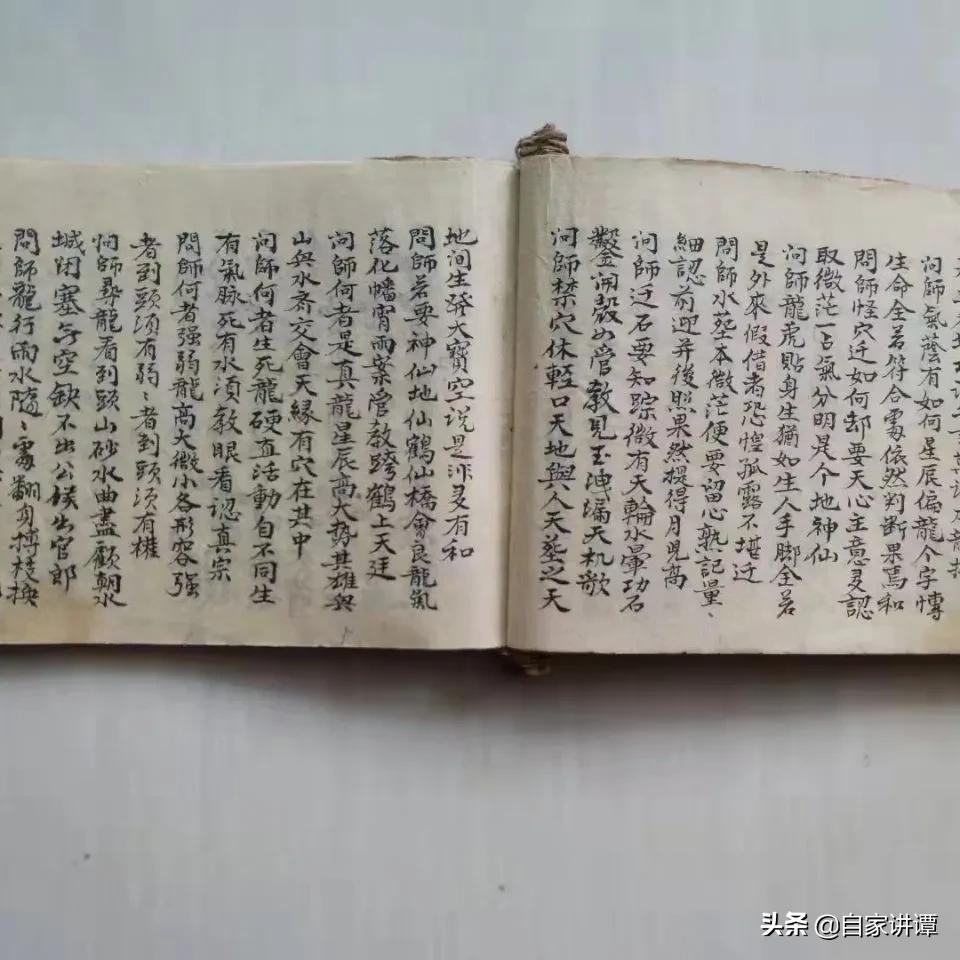 問師氣蔭有如何星辰偏龍个字愽
生命全若符合處依然判断果焉和
問師怪穴迁如何却要天心主意灵認
取微茫一㸃氣分明是个地神仙
问師龍虎貼身生猶如生人手脚全若
是外來假借者恐惶孤露不堪迁
問師水𦵏本微茫便要留心熟記量、
細認前迎并後照果然提得月見高
问師迁石要知踪微有天輪水暈功石
鑿開殻如管教見玉洩漏天机歌
问師禁穴休輕口天地與人天𦵏之天
地间生發大寳空说是泎灵有和
問師若要神仙地仙鶴仙橋會良龍氣
落化幡霄雨案管教跨鶴上天廷
问師何者是真龍星辰高大势其雄與
山與水斎交會天縁有穴在其中
问師何者生死龍硬直活動自不同生
有氣脉死有水湏教眼看認真宗
問師何者强弱龍高大微小各形容强
者到頭須有弱、者到頭須有權
问師尋龍看到頭山砂水曲盡顧朝水
城闭塞无空缺不出公侯出官郎
問師龍行雨水隨、處翻身博枝换
头条 @自家讲谭